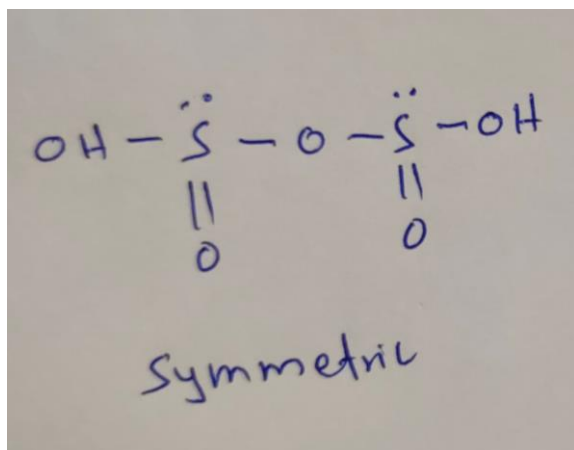 OH - S̈ - O - S̈ - OH
|| ||
O O
Symmetric